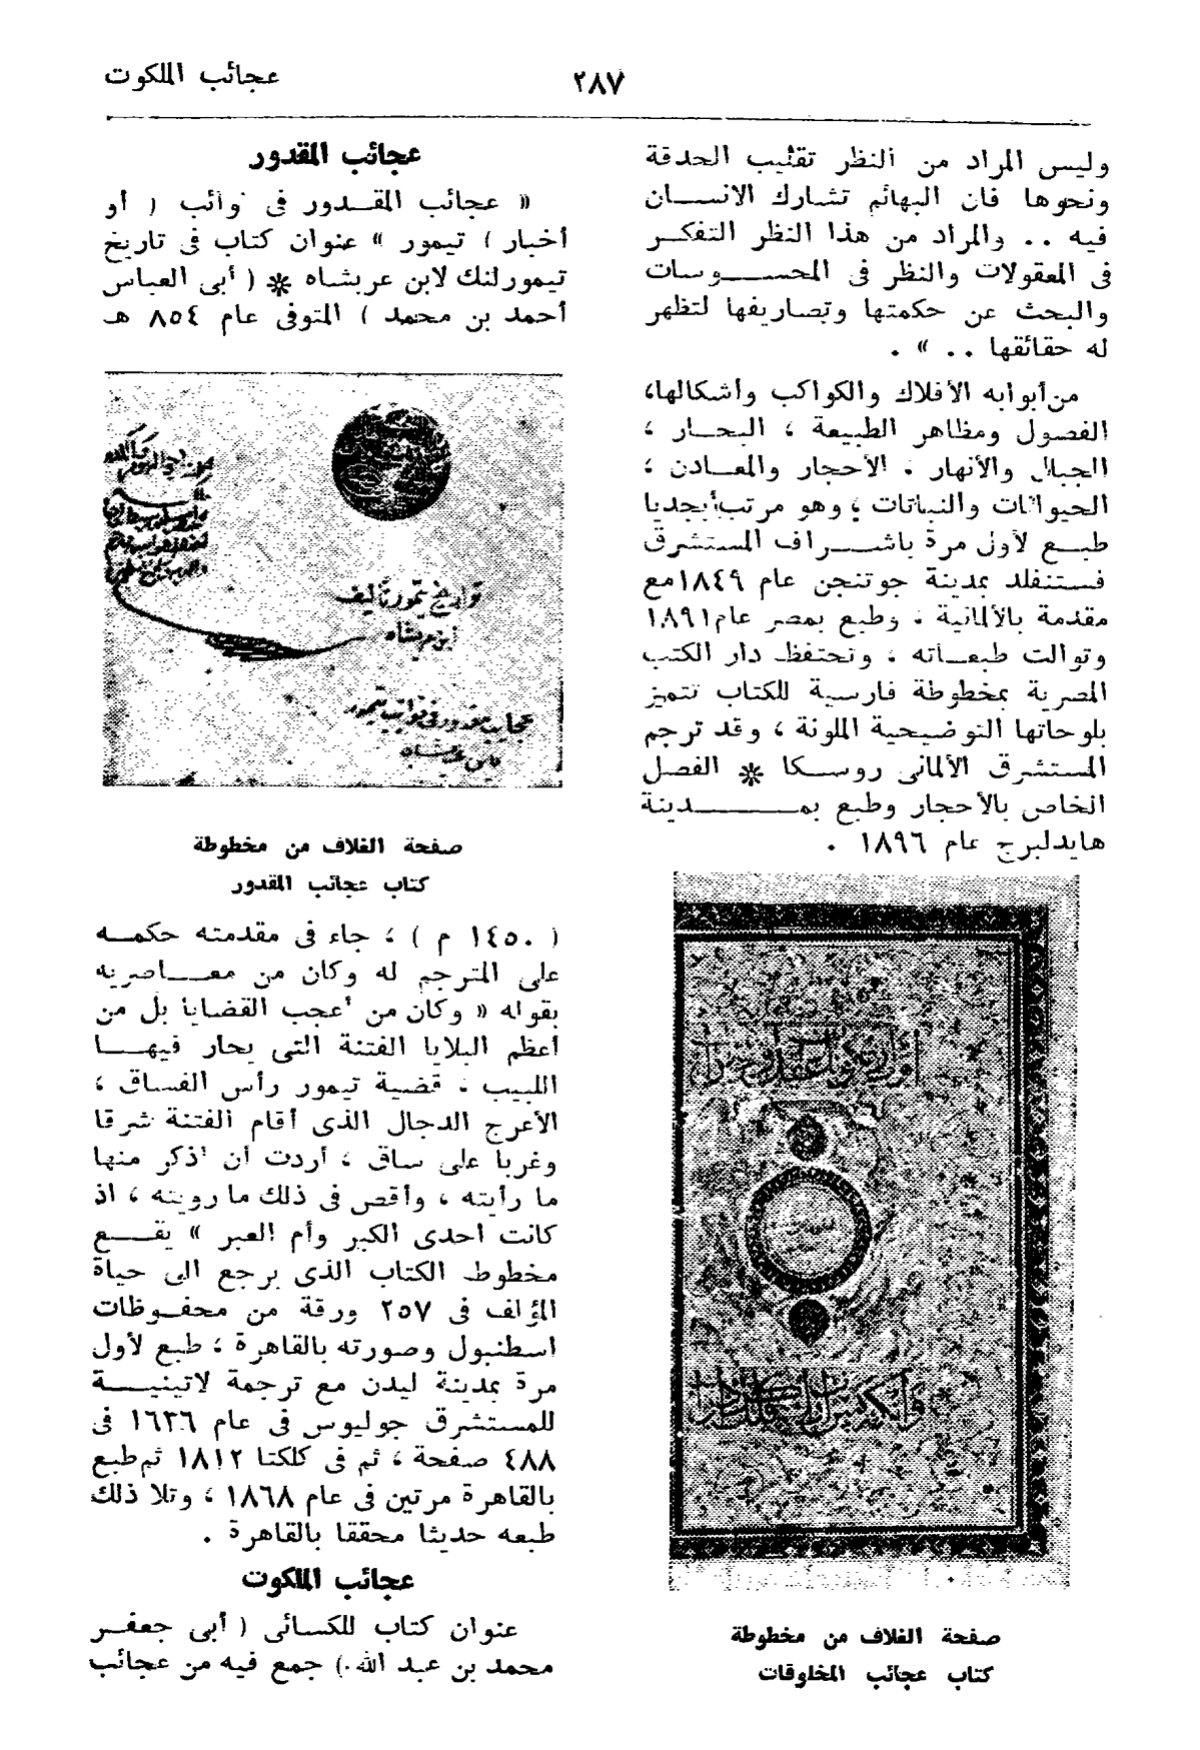 عجائب الملكوت
٢٨٧
وليس المراد من النظر تقليب الحدقة
ونحوها فان البهائم تشارك الانسان
فيه .. والمراد من هذا النظر التفكر
فى المعقولات والنظر فى المحسوسات
والبحث عن حكمتها وتصاريفها لتظهر
له حقائقها .. » .
من أبوابه الأفلاك والكواكب وأشكالها،
الفصول ومظاهر الطبيعة ، البحار ،
الجبال والأنهار . الأحجار والمعادن ،
الحيوانات والنباتات ؛ وهو مرتب أبجديا
طبع لأول مرة باشراف المستشرق
فستنفلد بمدينة جوتنجن عام ١٨٤٩ مع
مقدمة بالألمانية ، وطبع بمصر عام ١٨٩١
وتوالت طبعاته ، وتحتفظ دار الكتب
المصرية بمخطوطة فارسية للكتاب تتميز
بلوحاتها التوضيحية الملونة ، وقد ترجم
المستشرق الألمانى روسكا * الفصل
الخاص بالأحجار وطبع بمدينة
هايدلبرج عام ١٨٩٦ .
صفحة الغلاف من مخطوطة
كتاب عجائب المخلوقات
عجائب المقدور
« عجائب المقدور فى نوائب ( أو
أخبار ) تيمور » عنوان كتاب فى تاريخ
تيمورلنك لابن عربشاه * ( أبى العباس
أحمد بن محمد ) المتوفى عام ٨٥٤ هـ
تواريخ تيمور تأليف
ابن عربشاه
عجايب مقدور فى نوائب تيمور
صفحة الغلاف من مخطوطة
كتاب عجائب المقدور
( ١٤٥٠ م ) ؛ جاء فى مقدمته حكمه
على المترجم له وكان من معاصريه
بقوله « وكان من أعجب القضايا بل من
أعظم البلايا الفتنة التى يحار فيها
اللبيب ، قضية تيمور رأس الفساق ،
الأعرج الدجال الذى أقام الفتنة شرقا
وغربا على ساق ، أردت أن أذكر منها
ما رأيته ، وأقص فى ذلك ما رويته ، اذ
كانت احدى الكبر وأم العبر » يقع
مخطوط الكتاب الذى يرجع الى حياة
المؤلف فى ٢٥٧ ورقة من محفوظات
اسطنبول وصورته بالقاهرة ؛ طبع لأول
مرة بمدينة ليدن مع ترجمة لاتينية
للمستشرق جوليوس فى عام ١٦٣٦ فى
٤٨٨ صفحة ، ثم فى كلكتا ١٨١٢ ثم طبع
بالقاهرة مرتين فى عام ١٨٦٨ ، وتلا ذلك
طبعه حديثا محققا بالقاهرة .
عجائب الملكوت
عنوان كتاب للكسائى ( أبى جعفر
محمد بن عبد الله ) جمع فيه من عجائب